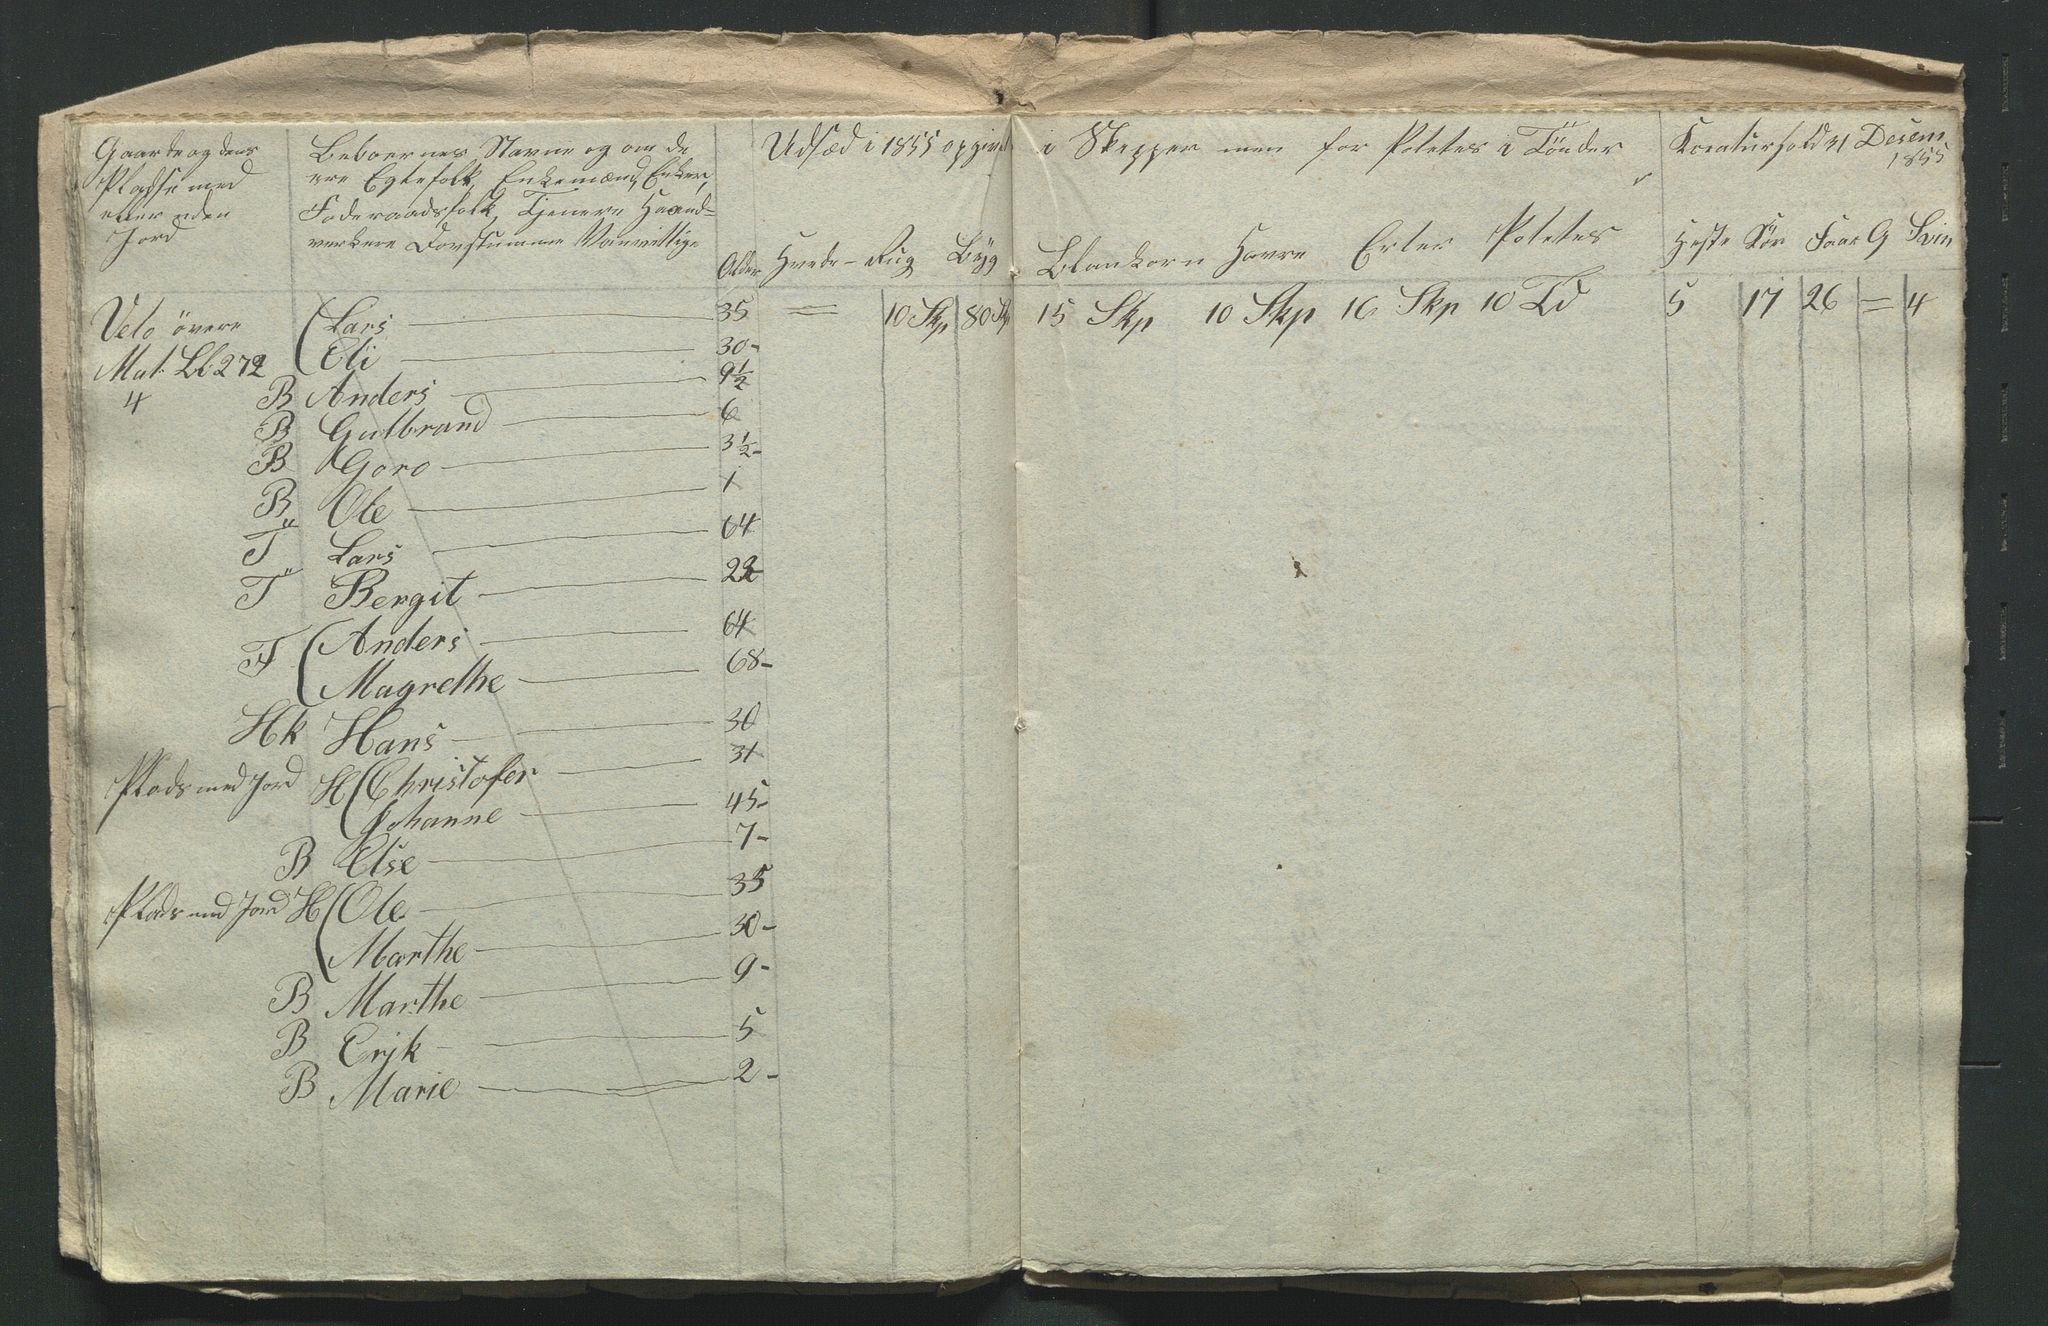 Gaarde og dens
Pladse med
eller uden
Jord
Beboernes Navne og om de
ere Egtefolk, Enkemænd, Enker,
Foderaadsfolk, Tjenere Haand-
verkere Dovstumme Vanvittige
Alder
Udsæd i 1855 opgivet i Skepper men for Potetes i Tönder
Hvede - Rug Byg Blankorn Havre Erter Potetes
Kreaturhold 31 Desem
1855
Heste Kör Faar G Svin
Velo övere Lars 35 = 10 Skp 80 Skp 15 Skp 10 Skp 16 Skp 10 Td 5 17 26 = 4
Mat. Lb 272 Eli 30-
4 B Anders 9½
B Gulbrand 6
B Goro 3½-
B Ole 1
T Lars 64
T Bergit 22
F Anders 64
Magrethe 68-
Hk Hans 30
Plads med Jord H Christofer 31
Johanne 45-
B Else 7-
Plads med Jord H Ole 35
Marthe 30-
B Marthe 9-
B Erik 5
B Marie 2-